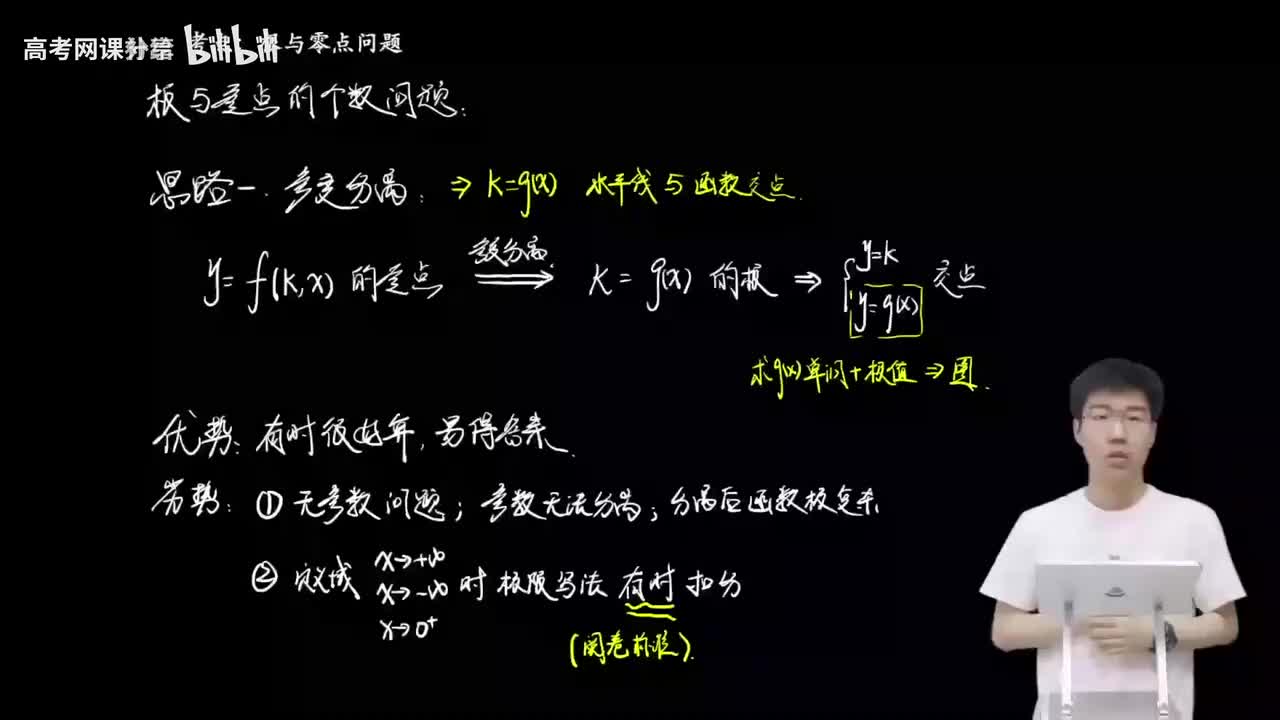 高考网课补给 bilibili 与零点问题
根与零点的个数问题:
思路一. 参变分离: ⇒ k=g(x) 水平线与函数交点.
y=f(k,x) 的零点 参变分离 ⟹ k=g(x) 的根 ⇒ { y=k y=g(x) 交点
求g(x)单调+极值⇒图.
优势: 有时很好算, 易得答案.
劣势: ① 无参数问题; 参数无法分离; 分离后函数极复杂
② 定义域 x→+∞ x→-∞ x→0⁺ 时极限写法有时扣分
(阅卷标准).